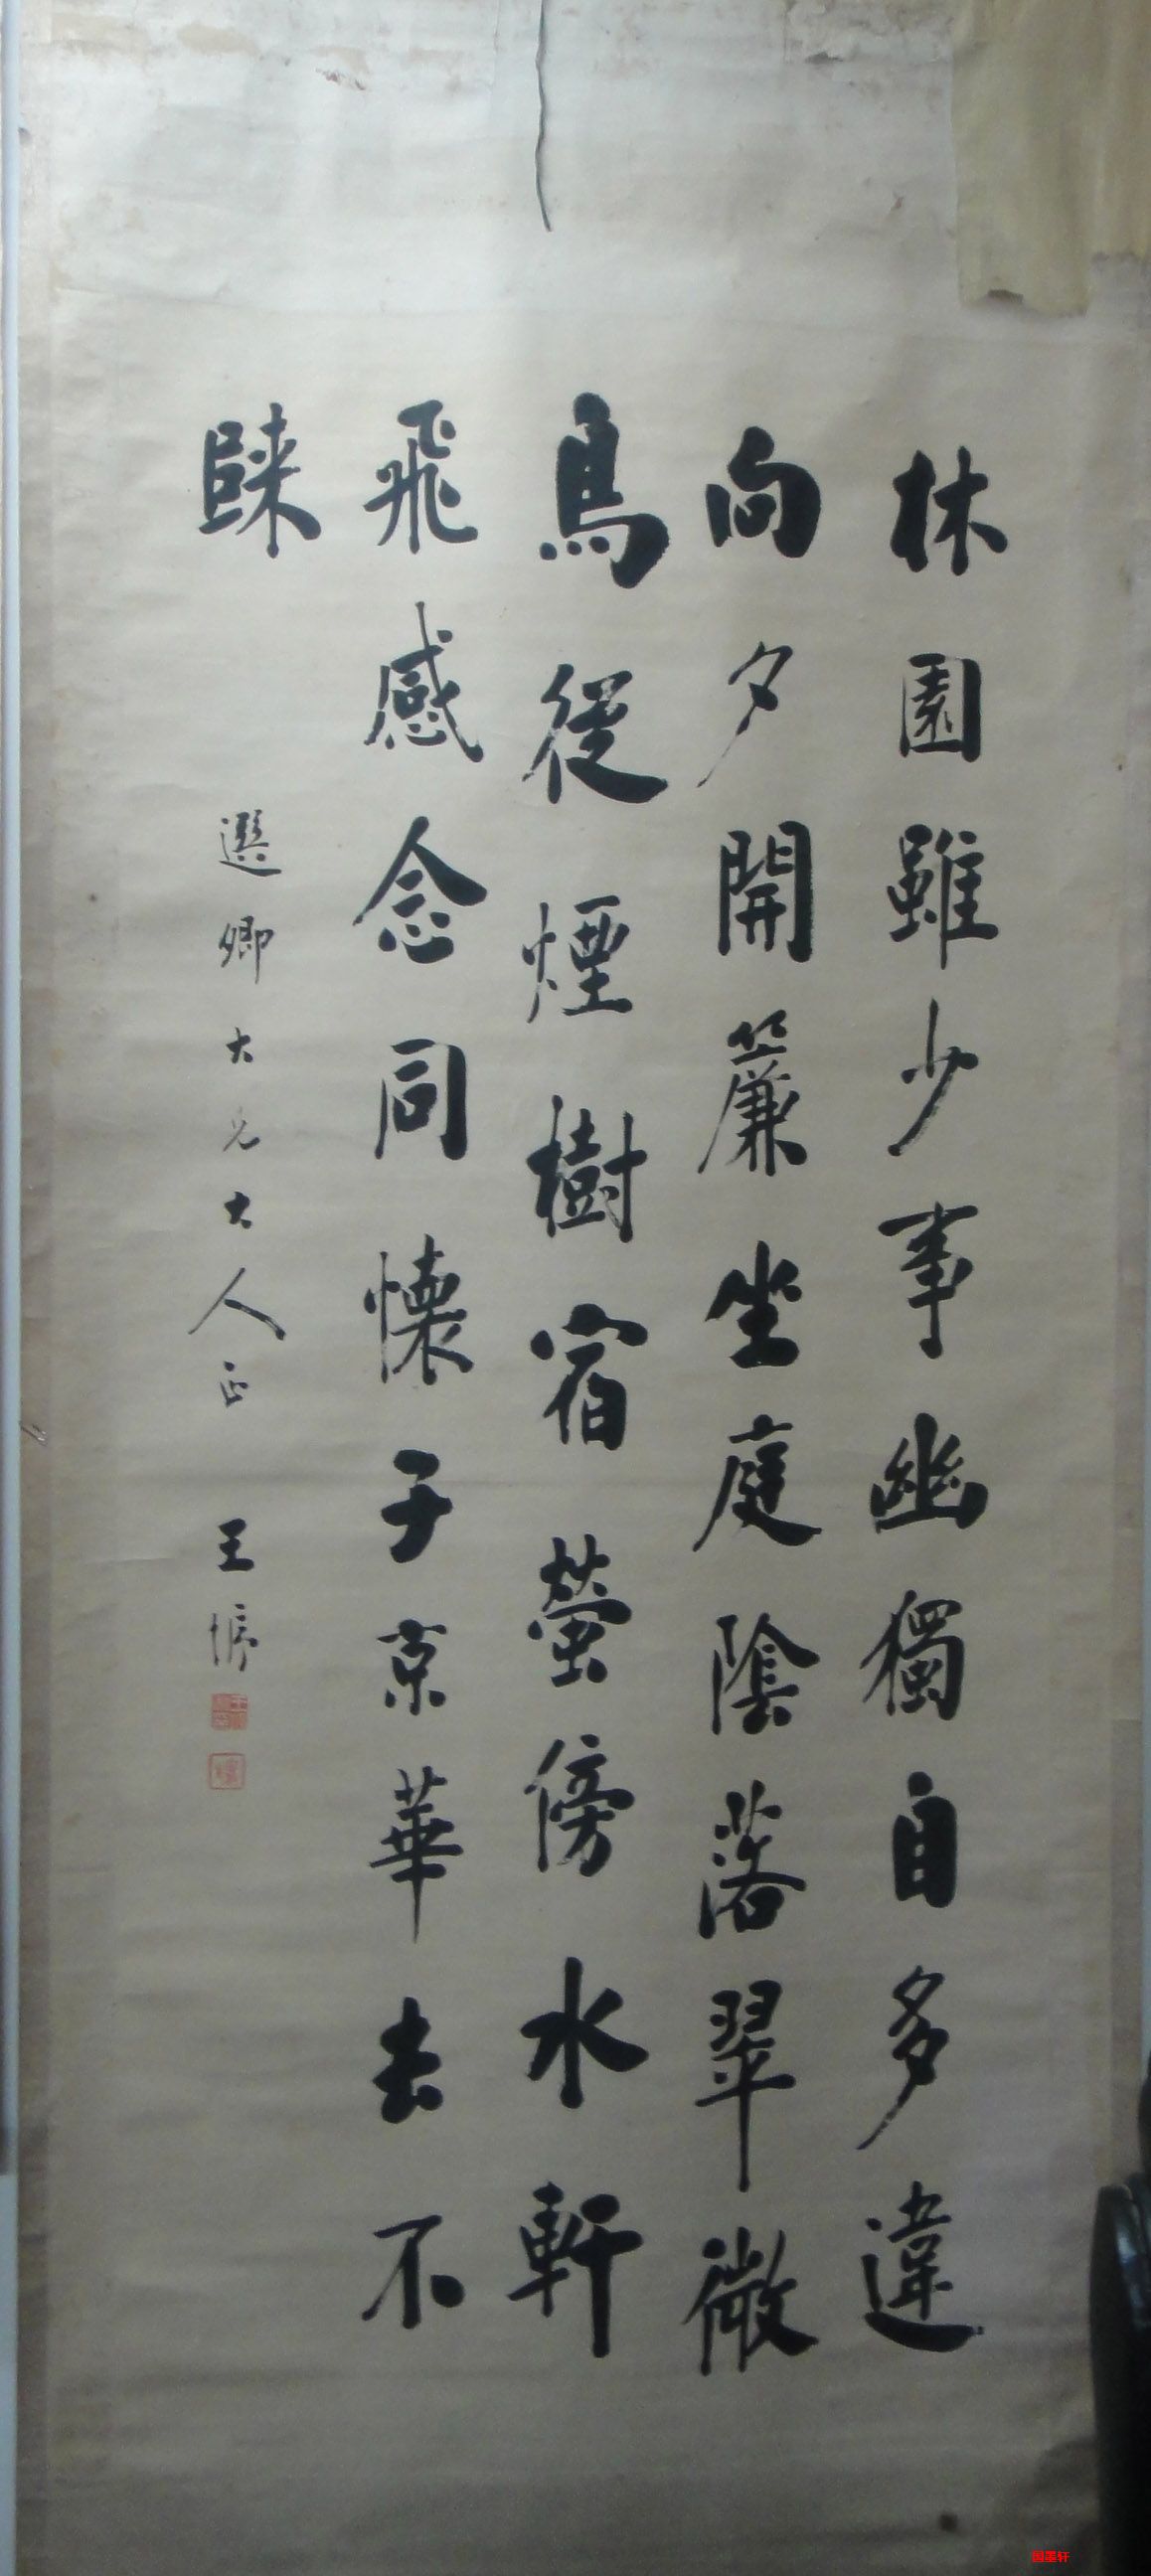 林園雖少事幽獨自多違
向夕開簾坐庭陰落翠微
鳥從煙樹宿螢傍水軒
飛感念同懷子京華去不
歸
選卿大兄大人正
王
国墨轩